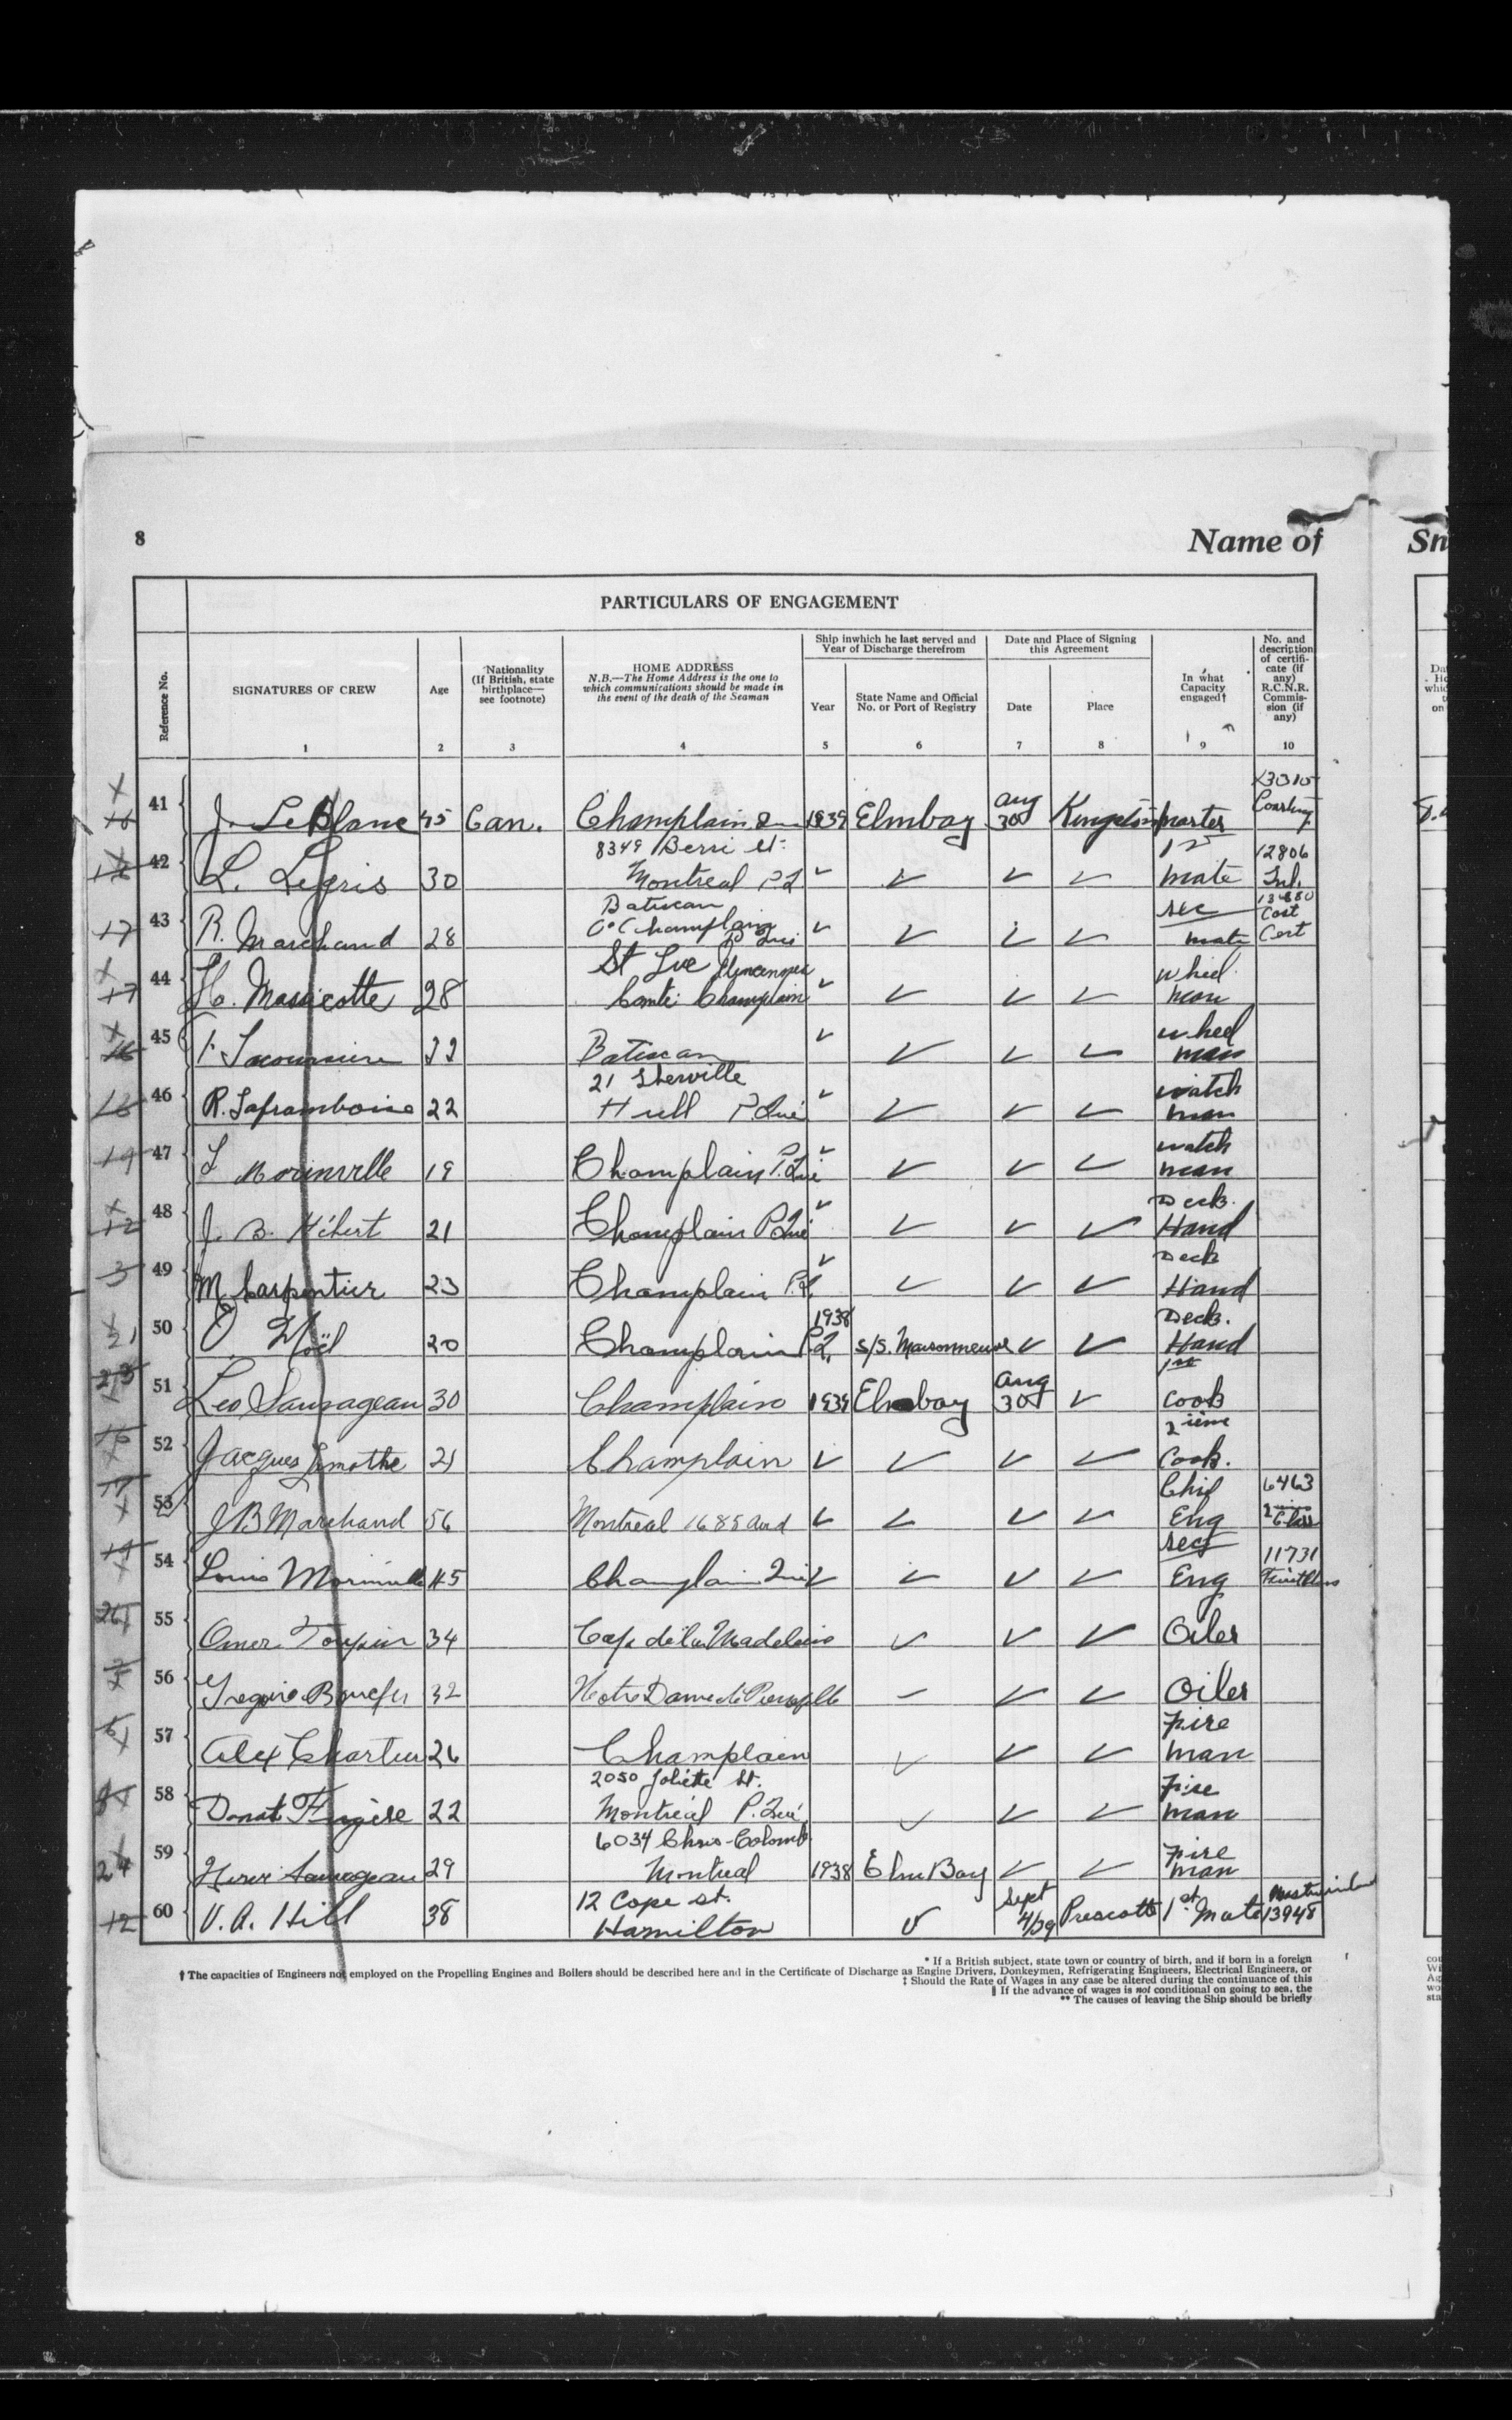 8
Name of
PARTICULARS OF ENGAGEMENT
Reference No.
SIGNATURES OF CREW
1
Age
2
Nationality
(If British, state
birthplace—
see footnote)
3
HOME ADDRESS
N.B.—The Home Address is the one to
which communications should be made in
the event of the death of the Seaman
4
Ship inwhich he last served and
Year of Discharge therefrom
Year
5
State Name and Official
No. or Port of Registry
6
Date and Place of Signing
this Agreement
Date
7
Place
8
In what
Capacity
engaged†
9
No. and
description
of certifi-
cate (if
any)
R.C.N.R.
Commis-
sion (if
any)
10
41 J. LeBlanc 45 Can. Champlain 1939 Elmbay Aug 30 Kingston Master
42 L. Legris 30 8349 Berri St. Montreal P2 ✓ ✓ ✓ ✓ 1st mate 12806 Inl.
43 R. Marchand 28 Batiscan Co Champlain ✓ ✓ ✓ ✓ sec mate Cost Cert
44 H. Massicotte 28 St Luc Comté Champlain ✓ ✓ ✓ ✓ wheel man
45 22 Batiscan ✓ ✓ ✓ ✓ wheel man
46 R. Laframboise 22 21 Hull P. Qué ✓ ✓ ✓ ✓ watch man
47 L Morinville 19 Champlain P. Qué ✓ ✓ ✓ ✓ watch man
48 J. B. Hébert 21 Champlain P. Qué ✓ ✓ ✓ ✓ Deck Hand
49 M Carpentier 23 Champlain P.Q. ✓ ✓ ✓ ✓ Deck Hand
50 O. Noël 20 Champlain P.Q. 1938 s/s. Maisonneuve ✓ ✓ Deck. Hand
51 Leo Sauvageau 30 Champlain 1939 Elmbay Aug 30 ✓ 1st cook
52 Jacques Lamothe 21 Champlain ✓ ✓ ✓ ✓ 2ième Cook.
53 J B Marchand 56 Montreal 1685 ✓ ✓ ✓ ✓ Chif Eng 6463 Class
54 Louis Morinville 45 Champlain Qué ✓ ✓ ✓ ✓ sec Eng 11731
55 Omer Toupin 34 Cap de la Madeleine ✓ ✓ ✓ Oiler
56 32 Notre Dame ✓ ✓ Oiler
57 Alex Chartier 26 Champlain ✓ ✓ ✓ Fire man
58 Donat 22 2050 Joliette St. Montréal P. Qué ✓ ✓ ✓ Fire man
59 Sauvageau 29 6034 Chris-Colomb Montreal 1938 Elm Bay ✓ ✓ Fire man
60 V. A. Hill 38 12 Cope st. Hamilton ✓ Sept 4/39 Prescott 1st Mate 13948
* If a British subject, state town or country of birth, and if born in a foreign
† The capacities of Engineers not employed on the Propelling Engines and Boilers should be described here and in the Certificate of Discharge as Engine Drivers, Donkeymen, Refrigerating Engineers, Electrical Engineers, or
‡ Should the Rate of Wages in any case be altered during the continuance of this
‖ If the advance of wages is not conditional on going to sea, the
** The causes of leaving the Ship should be briefly